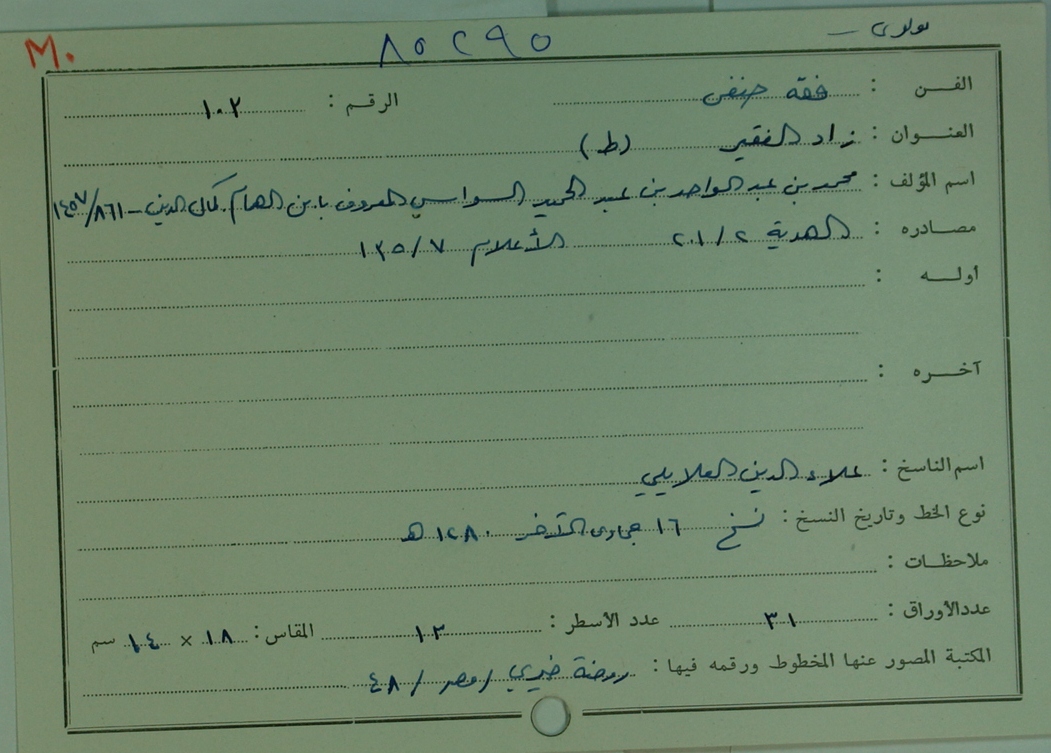 M.
٨٥٢٩٥
بولاق
الفن : فقه حنفي الرقم : ١٠٢
العنوان : زاد الفقير (ط)
اسم المؤلف : محمد بن عبد الواحد بن عبد الحميد السواسي المعروف بابن الهمام كمال الدين – ٨٦١/١٤٥٧
مصادره : الهدية ٢٠١/٢ الأعلام ١٣٥/٧
أوله :
آخره :
اسم الناسخ : علاء الدين العلايلي
نوع الخط وتاريخ النسخ : نسخ ١٦ جمادى الآخر ١٢٨٠ هـ
ملاحظات :
عدد الأوراق : ٣١ عدد الأسطر : ١٣ المقاس : ١٨ × ١٤ سم
المكتبة المصور عنها المخطوط ورقمه فيها : روضة خيري / مصر / ٤٨